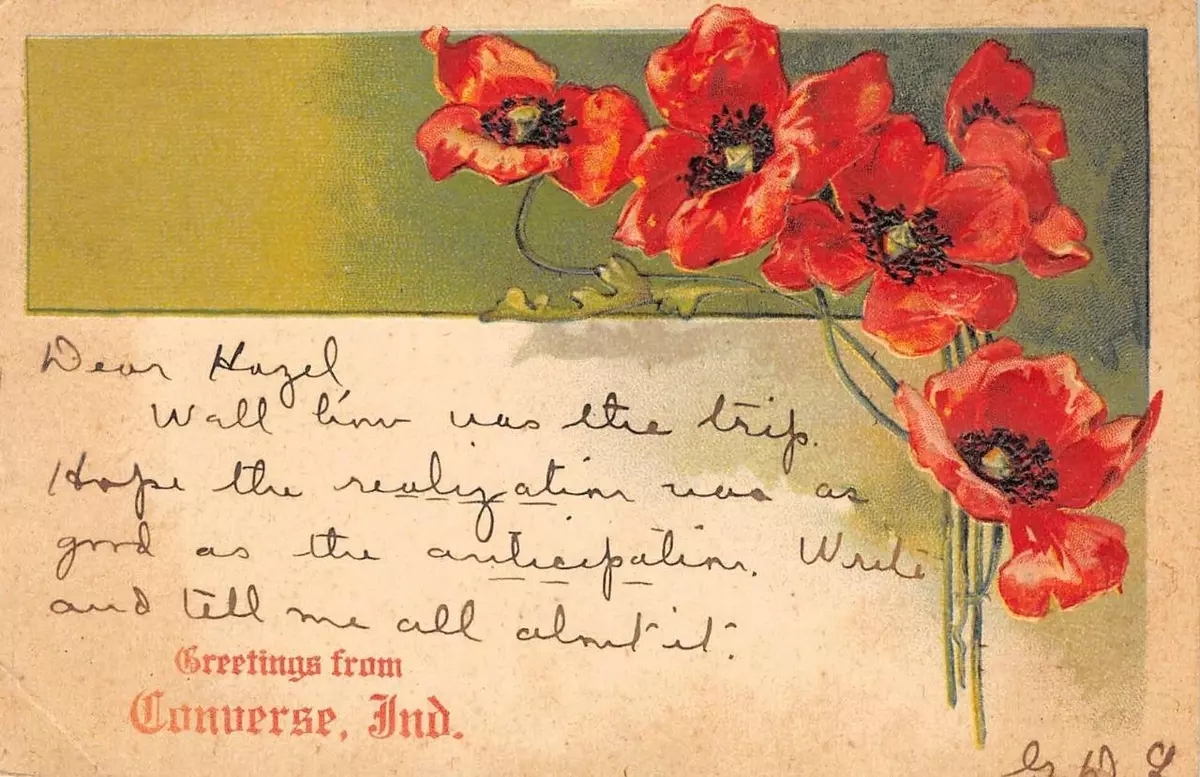 Dear Hazel
Wall how was the trip.
Hope the realization was as
good as the anticipation. Write
and tell me all about it.
Greetings from
Converse, Ind.